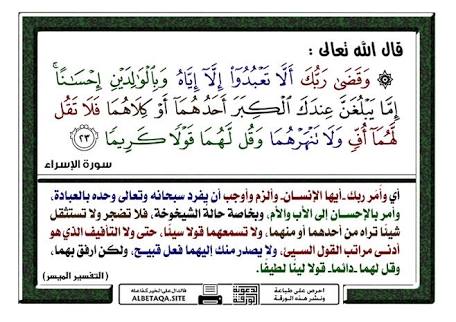 قال الله تعالى :
۞ وَقَضَىٰ رَبُّكَ أَلَّا تَعْبُدُوٓا۟ إِلَّآ إِيَّاهُ وَبِٱلْوَٰلِدَيْنِ إِحْسَٰنًا ۚ
إِمَّا يَبْلُغَنَّ عِندَكَ ٱلْكِبَرَ أَحَدُهُمَآ أَوْ كِلَاهُمَا فَلَا تَقُل
لَّهُمَآ أُفٍّ وَلَا تَنْهَرْهُمَا وَقُل لَّهُمَا قَوْلًا كَرِيمًا ﴿٢٣﴾
سورة الإسراء
أي وأمر ربك ـ أيها الإنسان ـ وألزم وأوجب أن يفرد سبحانه وتعالى وحده بالعبادة،
وأمر بالإحسان إلى الأب والأم، وبخاصة حالة الشيخوخة، فلا تضجر ولا تستثقل
شيئًا تراه من أحدهما أو منهما، ولا تسمعهما قولا سيئًا، حتى ولا التأفيف الذي هو
أدنى مراتب القول السيئ، ولا يصدر منك إليهما فعل قبيح، ولكن ارفق بهما،
وقل لهما ـ دائما ـ قولا لينًا لطيفًا.
(التفسير الميسر)
احرص على طباعة
ونشر هذه الورقة
فالدال على الخير كفاعله
ALBETAQA.SITE